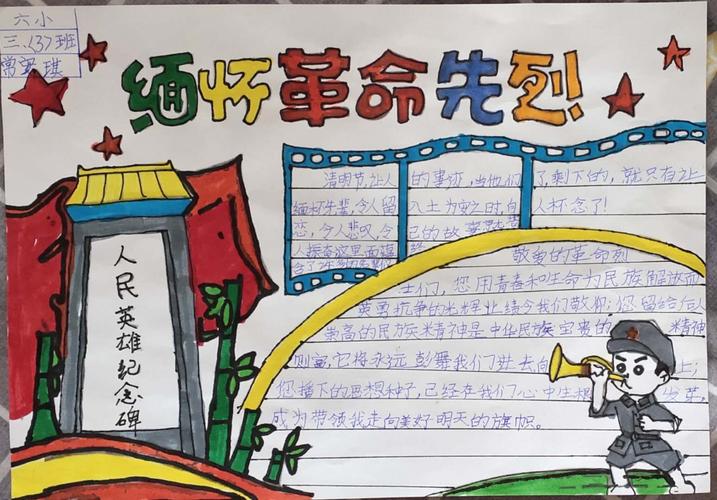 六小
三.(3)班
常 琪
缅怀革命先烈!
人民英雄纪念碑
清明节,让人的事迹,当他们了,剩下的,就只有让
缅怀先辈,令人留入土为安之时,自人怀念了!
恋,令人悲叹,令己的故
人振奋,这里面蕴
敬爱的革命烈
士们,您用青春和生命为民族解放而
英勇抗争的光辉业绩令我们敬仰;您留给后人
崇高的民族精神是中华民族宝贵的精神
财富,它将永远鼓舞我们进去向上;
您播下的思想种子,已经在我们心中生根发芽,
成为带领我走向美好明天的旗帜。